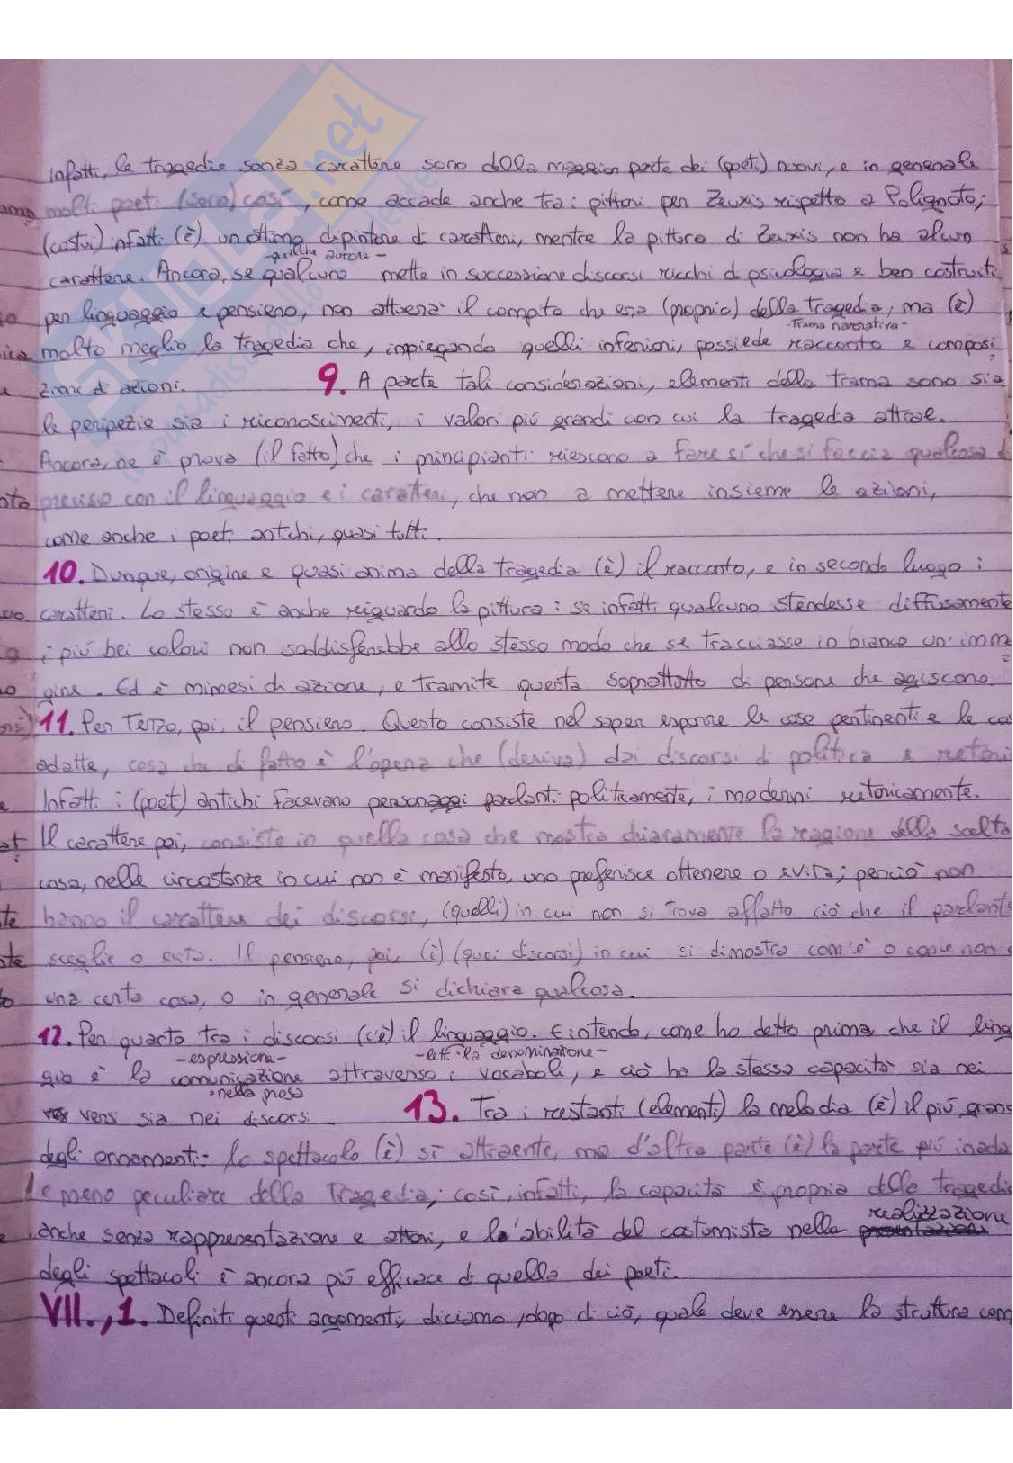 Infatti, le tragedie senza carattere sono della maggior parte dei (poeti) nuovi, e in generale
molti poeti (sono) così, come accade anche tra i pittori per Zeuxis rispetto a Polignoto;
(costui) infatti (è) un ottimo dipintore di caratteri, mentre la pittura di Zeuxis non ha alcun
-qualche autore-
carattere. Ancora, se qualcuno mette in successione discorsi ricchi di psicologia e ben costruiti
per linguaggio e pensiero, non otterrà il compito che era (proprio) della tragedia, ma (è)
-Trama narrativa-
molto meglio la tragedia che, impiegando quelli inferiori, possiede racconto e composi
zione di azioni. 9. A parte tali considerazioni, elementi della trama sono sia
le peripezie sia i riconoscimenti, i valori più grandi con cui la tragedia attrae.
Ancora, ne è prova (il fatto) che i principianti riescono a fare sì che si faccia qualcosa di
preciso con il linguaggio e i caratteri, che non a mettere insieme le azioni,
come anche i poeti antichi, quasi tutti.
10. Dunque, origine e quasi anima della tragedia (è) il racconto, e in secondo luogo i
caratteri. Lo stesso è anche riguardo la pittura: se infatti qualcuno stendesse diffusamente
i più bei colori non soddisferebbe allo stesso modo che se tracciasse in bianco un'imma
gine. Ed è mimesi di azione, e tramite questa soprattutto di persone che agiscono.
11. Per terzo, poi, il pensiero. Questo consiste nel saper esporre le cose pertinenti e le cose
adatte, cosa che di fatto è l'opera che (deriva) dai discorsi di politica e retori
Infatti i (poeti) antichi facevano personaggi parlanti politicamente, i moderni retoricamente.
Il carattere poi, consiste in quella cosa che mostra chiaramente la ragione della scelta
cosa, nelle circostanze in cui non è manifesto, uno preferisce ottenere o evita; perciò non
hanno il carattere dei discorsi, (quelli) in cui non si trova affatto ciò che il parlante
sceglie o evita. Il pensiero, poi, (è) (quei discorsi) in cui si dimostra com'è o come non è
una certa cosa, o in generale si dichiara qualcosa.
12. Per quarto tra i discorsi (c'è) il linguaggio. E intendo, come ho detto prima che il ling
-espressione- -lett. la denominazione-
gio è la comunicazione attraverso i vocaboli, e ciò ha la stessa capacità sia nei
nella prosa
versi sia nei discorsi. 13. Tra i restanti (elementi) la melodia (è) il più grande
degli ornamenti: lo spettacolo (è) sì attraente, ma d'altra parte (è) la parte più inada
e meno peculiare della Tragedia; così, infatti, la capacità è propria della tragedia
realizzazione
anche senza rappresentazione e attori, e l'abilità del costumista nella
degli spettacoli è ancora più efficace di quella dei poeti.
VII., 1. Definiti questi argomenti, diciamo, dopo di ciò, quale deve essere la struttura com